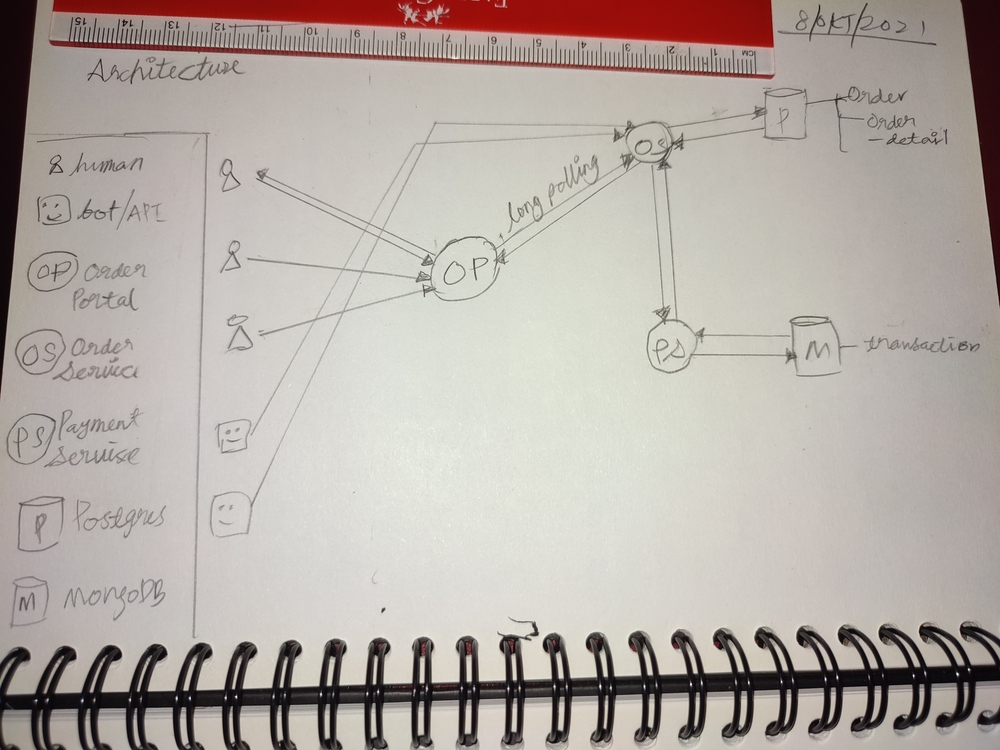 8/OKT/2021
15 14 13 12 11 10 9 8 7 6 5 4 3 2 1 CM
Architecture
human
bot/API
OP Order
Portal
OS Order
Service
PS Payment
Service
P Postgres
M MongoDB
OP
long polling
OS
P
Order
Order
-detail
PS
M
transaction